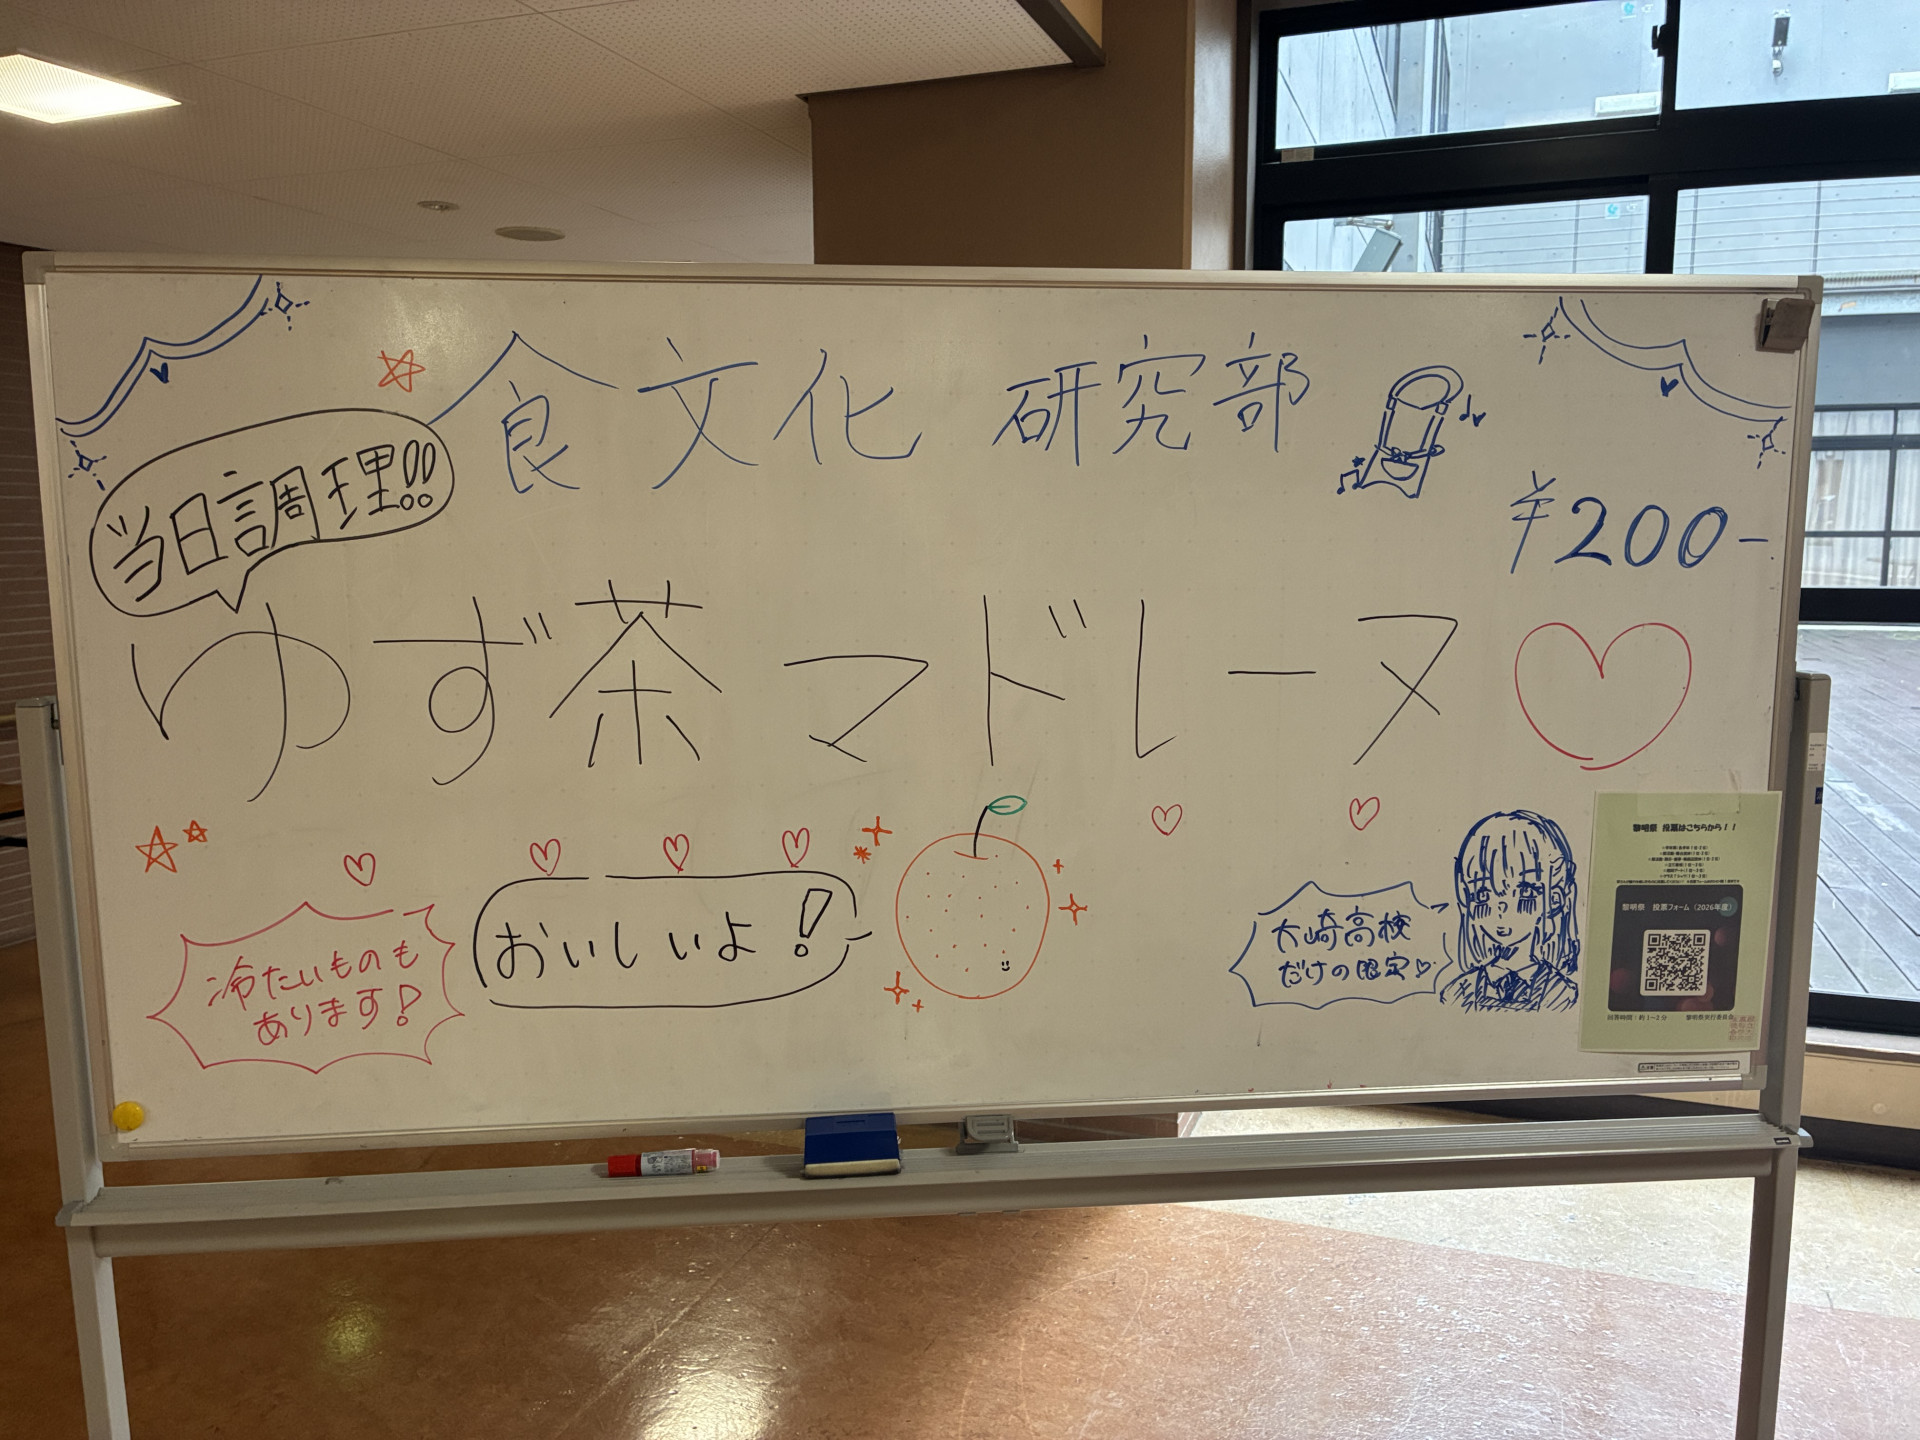 食文化 研究部
当日調理!!
¥200-
ゆず茶マドレーヌ
冷たいものも
あります!
おいしいよ!
大崎高校
だけの限定
黎明祭 投票はこちらから!!
黎明祭 投票フォーム(2026年度)
回答時間:約1~2分 黎明祭実行委員会